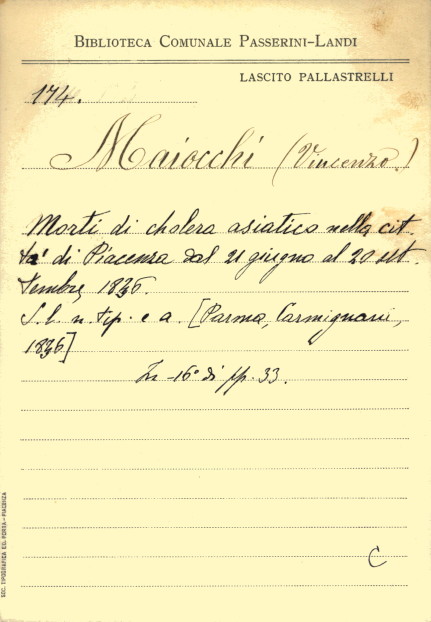 BIBLIOTECA COMUNALE PASSERINI-LANDI
LASCITO PALLASTRELLI
174.
Maiocchi (Vincenzo.)
Morti di cholera asiatico nella cit
ta' di Piacenza dal 21 giugno al 20 set
tembre 1836.
S. l. n. tip. e a. [Parma, Carmignani,
1836]
In -16° di pp. 33.
C
SOC. TIPOGRAFICA ED. PORTA - PIACENZA